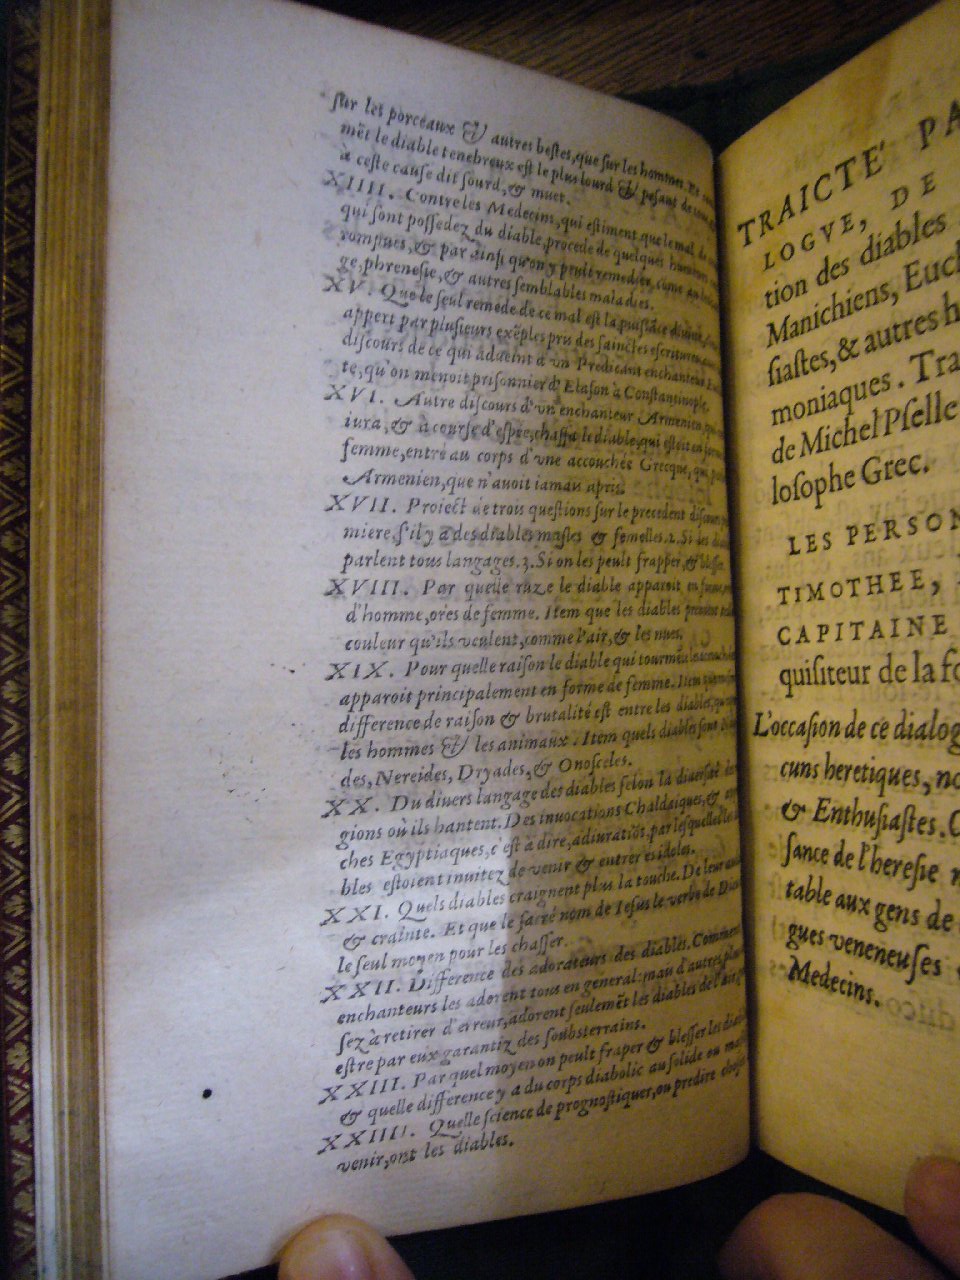 sur les porceaux & autres bestes, que sur les hommes. Et com
mẽt le diable tenebreux est le plus lourd & pesant de tous
à ceste cause dit sourd, & muet.
XIIII. Contre les Medecins, qui estiment que le mal de
qui sont possedez du diable, procede de quelques humeurs
rompues, & par ainsi qu'on y peult remedier, cõme
ge, phrenesie, & autres semblables maladies.
XV. Que le seul remede de ce mal est la puissãce diuine,
appert par plusieurs exẽples pris des sainctes escritures
discours de ce qui adueint à un Predicant enchanteur
te, qu'on menoit prisonnier d'Elason à Constantinople.
XVI. Autre discours d'vn enchanteur Armenien,
iura, & à course d'espée, chassa le diable, qui estoit en
femme, entré au corps d'vne accouchée Grecque, qui
Armenien, que n'auoit iamais apris.
XVII. Proiect de trois questions sur le precedent discours
miere, s'il y a des diables masles & femelles. 2. Si les
parlent tous langages. 3. Si on les peult frapper, & blesser.
XVIII. Par quelle ruze le diable apparoit en forme
d'homme, ores de femme. Item que les diables prennent
couleur qu'ils veulent, comme l'air, & les nues.
XIX. Pour quelle raison le diable qui tourmẽte les
apparoit principalement en forme de femme. Item
difference de raison & brutalité est entre les diables,
les hommes & les animaux. Item quels diables sont
des, Nereides, Dryades, & Onosceles.
XX. Du diuers langage des diables selon la diuersité des
gions où ils hantent. Des inuocations Chaldaiques, &
ches Egyptiaques, c'est à dire, adiuratiõs, par lesquelles les
bles estoient inuitez de venir & entrer es idoles.
XXI. Quels diables craignent plus la touche. De leur
& crainte. Et que le sacré nom de Iesus le verbe de Dieu
le seul moyen pour les chasser.
XXII. Difference des adorateurs des diables. Comment
enchanteurs les adorent tous en general: mais d'autres,
sez à retirer d'erreur, adorent seulemẽt les diables de l'air
estre par eux garantiz des soubsterrains.
XXIII. Par quel moyen on peult fraper & blesser les diables
& quelle difference y a du corps diabolic au solide
XXIIII. Quelle science de prognostiquer, ou predire
venir, ont les diables.
TRAICTE' PA
LOGVE, DE
tion des diables
Manichiens, Euch
siastes, & autres h
moniaques. Tra
de Michel Pselle
losophe Grec.
LES PERSON
TIMOTHEE,
CAPITAINE
quisiteur de la fo
L'occasion de ce dialog
cuns heretiques, no
& Enthusiastes.
sance de l'heresie
table aux gens de
gues veneneuses
Medecins.